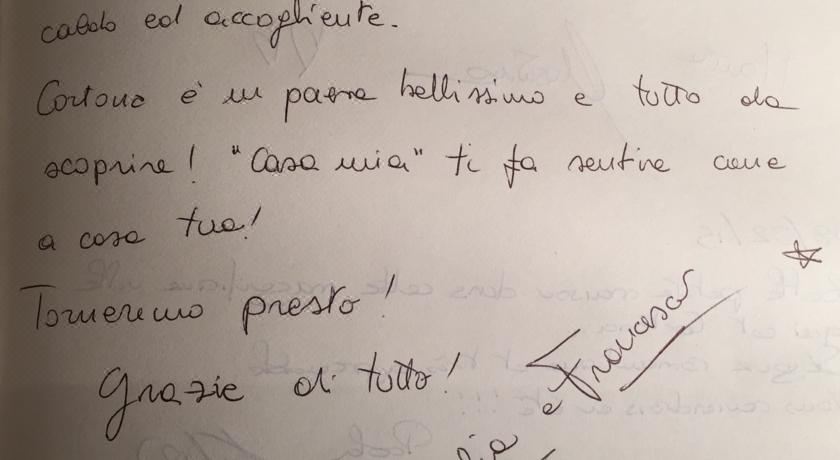 caldo ed accogliente.
Cortona è un paese bellissimo e tutto da
scoprire! "Casa mia" ti fa sentire come
a casa tua!
Torneremo presto!
Grazie di tutto!
e Francesca